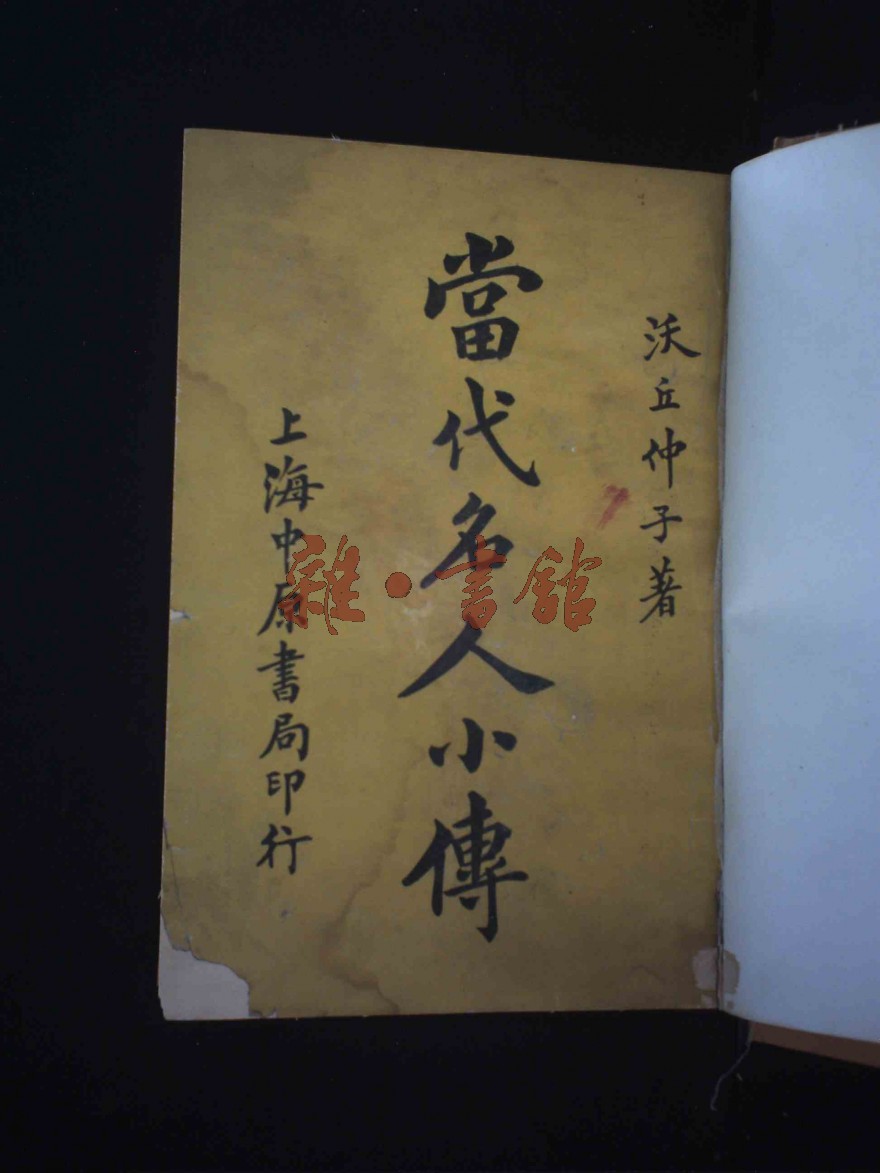 沃丘仲子著
當代名人小傳
上海中原書局印行
雜·書館